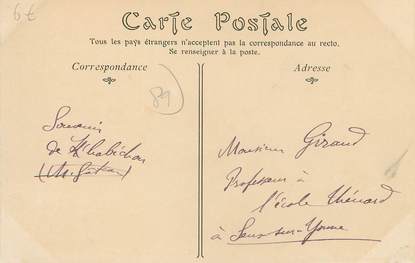 6€
Carte Postale
Tous les pays étrangers n'acceptent pas la correspondance au recto.
Se renseigner à la poste.
Correspondance
Adresse
84
Souvenir
de
Monsieur Giraud
Professeur à
l'école Thénard
à Sens-sur-Yonne